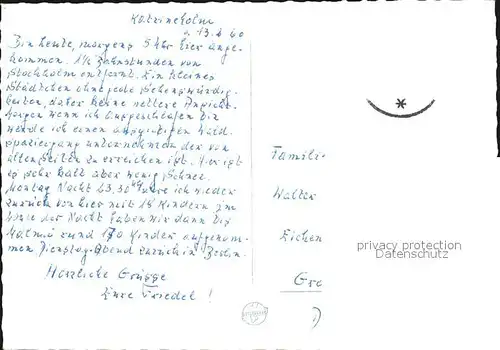 Katrineholm
d. 13.2.60
Bin heute, morgens 5 Uhr hier ange-
kommen. 1½ Bahnstunden von
Stockholm entfernt. Ein kleines
Städtchen ohne jede Sehenswürdig-
keiten, daher keine nettere Ansicht.
Morgen wenn ich ausgeschlafen bin
werde ich einen ausgiebigen Wald-
spaziergang unternehmen der von
allen Seiten zu erreichen ist. Hier ist
es sehr kalt aber wenig Schnee.
Montag Nacht 23,30 fahre ich wieder
zurück von hier mit 18 Kindern im
Laufe der Nacht haben wir dann bis
Malmö rund 170 Kinder aufgenom-
men Dienstag Abend zurück in Berlin.
Herzliche Grüsse
Eure Friedel !
Familie
Walter
Eichen
Gro
privacy protection
Datenschutz